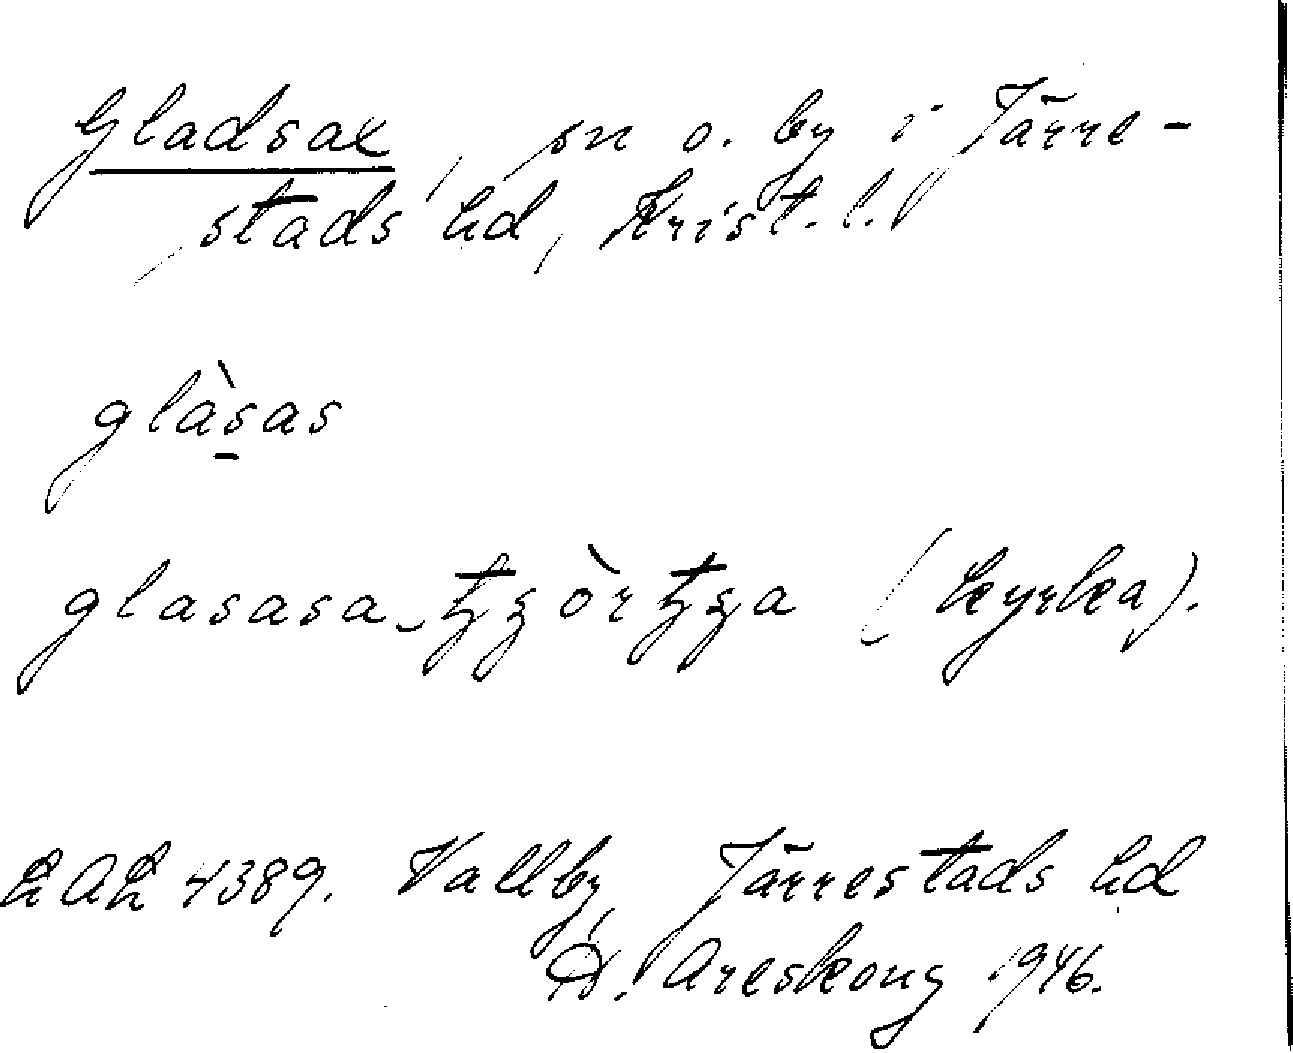 Gladsax, sn o. by i Järre-
stads hd, Krist. l.
glàs̱as
glasasa-tʒʒòrtʒʒa (kyrka).
LAL 4389. Vallby, Järrestads hd
A. Areskoug 1946.